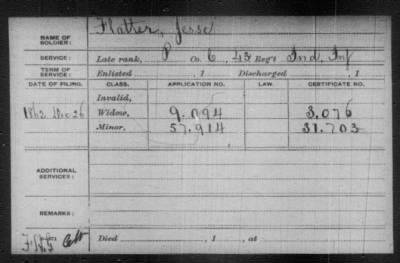 NAME OF SOLDIER: Flatter, Jesse
SERVICE: Late rank, P Co. C, 43 Reg't Ind. Inf
TERM OF SERVICE: Enlisted , 1 Discharged , 1
DATE OF FILING. CLASS. APPLICATION NO. LAW. CERTIFICATE NO.
Invalid,
1862 Dec 26 Widow, 9.094 3.076
Minor, 57.914 31.703
ADDITIONAL SERVICES:
REMARKS:
Died , 1 , at